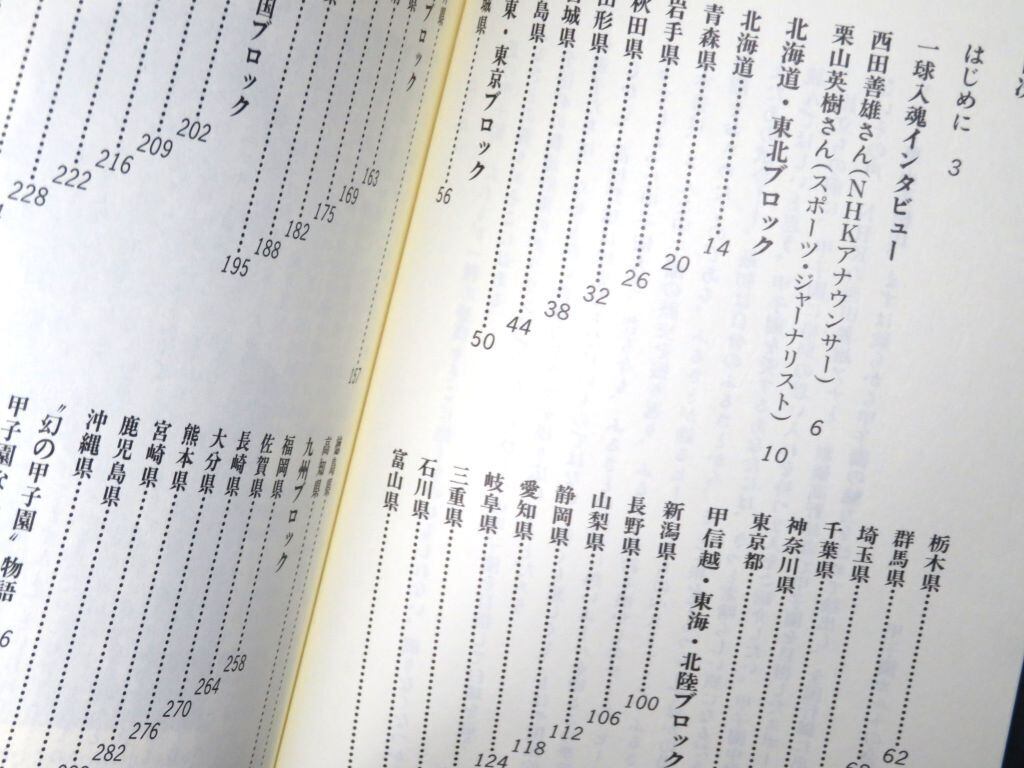 はじめに 3
一球入魂インタビュー
西田善雄さん(NHKアナウンサー) 6
栗山英樹さん(スポーツ・ジャーナリスト) 10
北海道・東北ブロック
北海道 14
青森県 20
岩手県 26
秋田県 32
形県 38
城県 44
島県 50
東・東京ブロック
城県 56
栃木県 62
群馬県
埼玉県
千葉県
神奈川県
東京都
甲信越・東海・北陸ブロック
新潟県 100
長野県 106
山梨県 112
静岡県 118
愛知県 124
岐阜県
三重県
石川県
富山県
157
ブロック
163
169
175
182
188
195
国ブロック
202
209
216
222
228
徳島県
高知県
九州ブロック
福岡県
佐賀県 258
長崎県 264
大分県 270
熊本県 276
宮崎県 282
鹿児島県
沖縄県
〝幻の甲子園〟物語
甲子園な